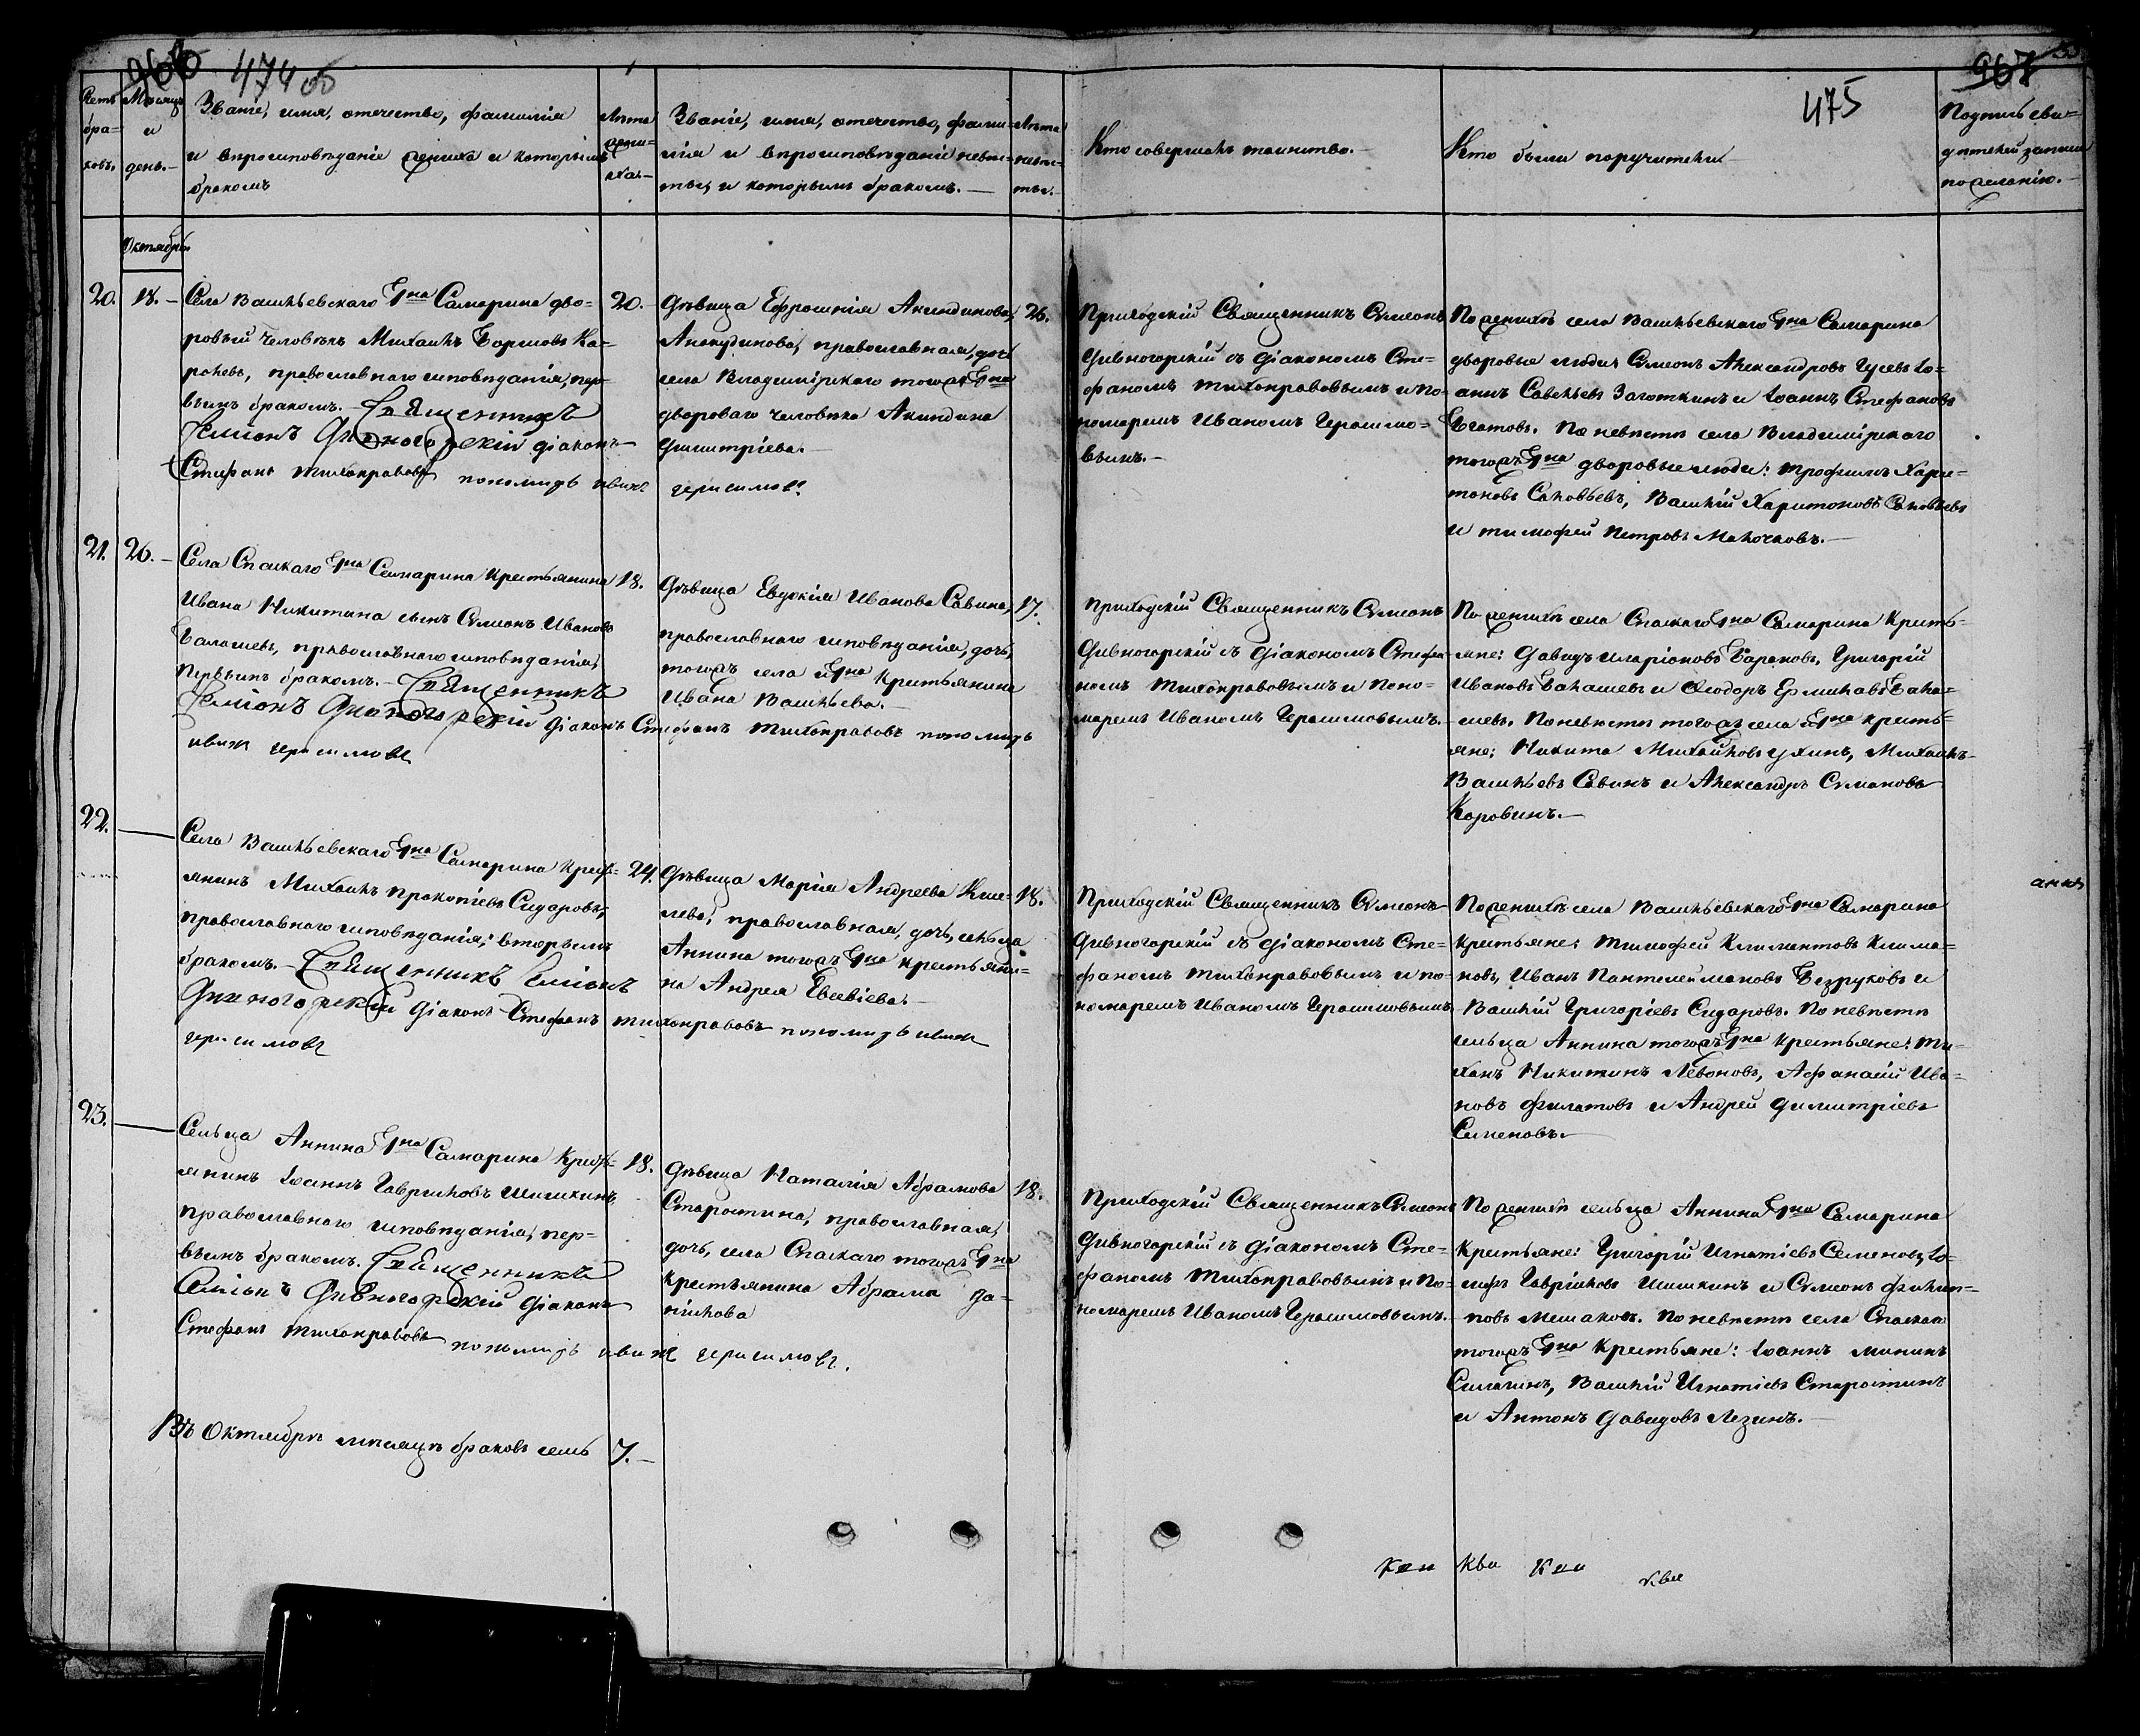 966 474 об
967
475
Счетъ бра-ковъ.
Мѣсяцъ и день.
Званіе, имя, отечество, фамилія
и вѣроисповѣданіе жениха и которымъ
бракомъ
Лѣта жени-ха.
Званіе, имя, отечество, фами-
лія и вѣроисповѣданіе невѣ-
сты, и которымъ бракомъ.
Лѣта невѣ-сты.
Кто совершалъ таинство.
Кто были поручители
Подпись сви-
дѣтелей записи
по желанію.
Октябрь
20. 18.
Села Васильевскаго Гна Самарина дво-
ровый человѣкъ Михаилъ Борисовъ Ко-
ролевъ, православнаго исповѣданія, пер-
вымъ бракомъ. Священникъ
Симеонъ Дивногорскій діаконъ
Стефанъ Тихонравовъ пономарь Иванъ Герасимовъ
20.
Дѣвица Ефросинія Акиндинова
Анкудинова, православная, дочь
села Владимірскаго тогожъ Гна
двороваго человѣка Акиндина
Димитріева.
26.
Приходскій Священникъ Симеонъ
Дивногорскій съ діакономъ Сте-
фаномъ Тихонравовымъ и по-
номаремъ Иваномъ Герасимо-
вымъ.
По женихѣ села Васильевскаго Гна Самарина
дворовые люди: Симеонъ Александровъ Гусевъ Іо-
аннъ Савельевъ Заготкинъ и Іоаннъ Стефановъ
По невѣстѣ села Владимірскаго
тогожъ Гна дворовые люди: Трофимъ Хари-
тоновъ Соловьевъ, Василій Харитоновъ Соловьевъ
и Тимофей Петровъ Малочковъ.
21. 26.
Села Спаскаго Гна Самарина крестьянина
Ивана Никитина сынъ Симеонъ Ивановъ
Балашевъ, православнаго исповѣданія,
первымъ бракомъ. Священникъ
Симеонъ Дивногорскій діаконъ Стефанъ Тихонравовъ пономарь
Иванъ Герасимовъ
18.
Дѣвица Евдокія Иванова Савина,
православнаго исповѣданія, дочь,
тогожъ села и Гна крестьянина
Ивана Васильева.
17.
Приходскій Священникъ Симеонъ
Дивногорскій съ діакономъ Стефа-
номъ Тихонравовымъ и поно-
маремъ Иваномъ Герасимовымъ.
По женихѣ села Спаскаго Гна Самарина кресть-
яне: Давидъ Иларіоновъ Барановъ, Григорій
Ивановъ Балашевъ и Ѳеодоръ Ермиловъ Бала-
шевъ. По невѣстѣ тогожъ села и Гна кресть-
яне: Никита Михайловъ Ухинъ, Михаилъ
Васильевъ Савинъ и Александръ Симоновъ
Коровинъ.
22.
Села Васильевскаго Гна Самарина крест-
янинъ Михаилъ Прокопіевъ Сидоровъ,
православнаго исповѣданія; вторымъ
бракомъ. Священникъ Симеонъ
Дивногорскій діаконъ Стефанъ Тихонравовъ пономарь Иванъ
Герасимовъ
24.
Дѣвица Марія Андреева Кисе-
лева, православная, дочь, сельца
Аннина тогожъ Гна крестьяни-
на Андрея Евсевіева.
18.
Приходскій Священникъ Симеонъ
Дивногорскій съ діакономъ Сте-
фаномъ Тихонравовымъ и по-
номаремъ Иваномъ Герасимовымъ
По женихѣ села Васильевскаго Гна Самарина
крестьяне: Тимофей Климентовъ Клима-
новъ, Иванъ Пантелеймоновъ Безруковъ и
Василій Григоріевъ Сидоровъ. По невѣстѣ
сельца Аннина тогожъ Гна крестьяне: Ти-
ханъ Никитинъ Левоновъ, Афанасій Ива-
новъ Филатовъ и Андрей Димитріевъ
Семеновъ.
23.
Сельца Аннина Гна Самарина крест-
янинъ Іоаннъ Гавриловъ Шишкинъ,
православнаго исповѣданія, пер-
вымъ бракомъ. Священникъ
Симеонъ Дивногорскій діаконъ
Стефанъ Тихонравовъ пономарь Иванъ Герасимовъ.
18.
Дѣвица Наталія Абрамова
Старостина, православная,
дочь, села Спаскаго тогожъ Гна
крестьянина Абрама Да-
нилова
18.
Приходскій Священникъ Симеонъ
Дивногорскій съ діакономъ Сте-
фаномъ Тихонравовымъ и по-
номаремъ Иваномъ Герасимовымъ.
По женихѣ сельца Аннина Гна Самарина
крестьяне: Григорій Игнатіевъ Семеновъ, Іо-
сифъ Гавріиловъ Шишкинъ и Симеонъ Филип-
повъ Мешаковъ. По невѣстѣ села Спаскаго
тогожъ Гна крестьяне: Іоаннъ Мининъ
Силагинъ, Василій Игнатіевъ Старостинъ
и Антонъ Давидовъ Лезинъ.
Въ Октябрѣ мѣсяцѣ браковъ семь 7.